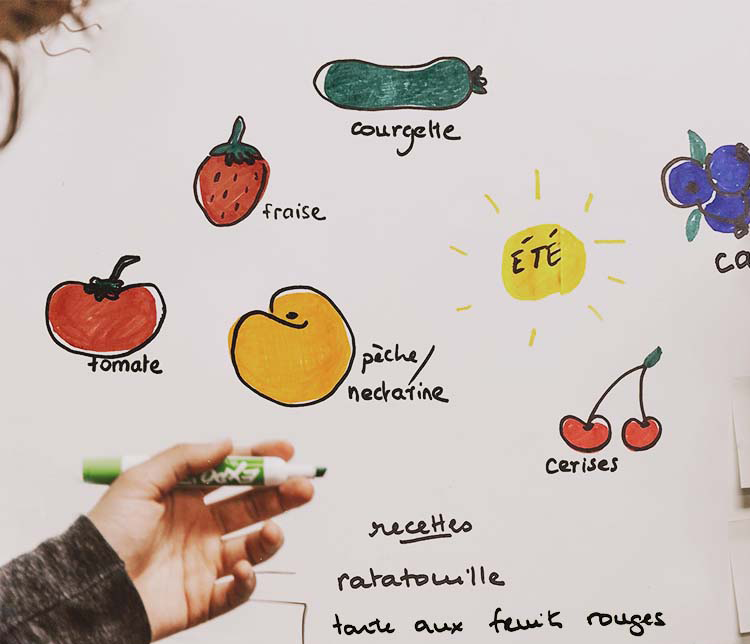 courgette
fraise
ÉTÉ
ca
tomate
pèche/
nectarine
cerises
EXPO
recettes
ratatouille
tarte aux fruits rouges